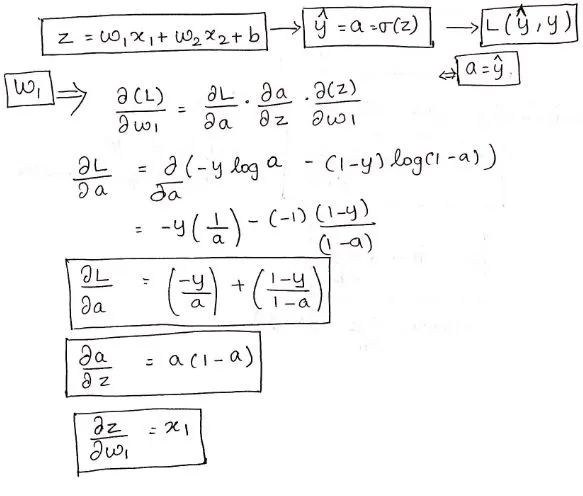 z = w₁x₁ + w₂x₂ + b → ŷ = a = σ(z) → L(ŷ, y)
⇔ a = ŷ.
w₁ ⇒ ∂(L)/∂w₁ = ∂L/∂a · ∂a/∂z · ∂(z)/∂w₁
∂L/∂a = ∂/∂a (-y log a - (1-y) log(1-a))
= -y(1/a) - (-1) (1-y)/(1-a)
∂L/∂a = (-y/a) + (1-y/1-a)
∂a/∂z = a(1-a)
∂z/∂w₁ = x₁